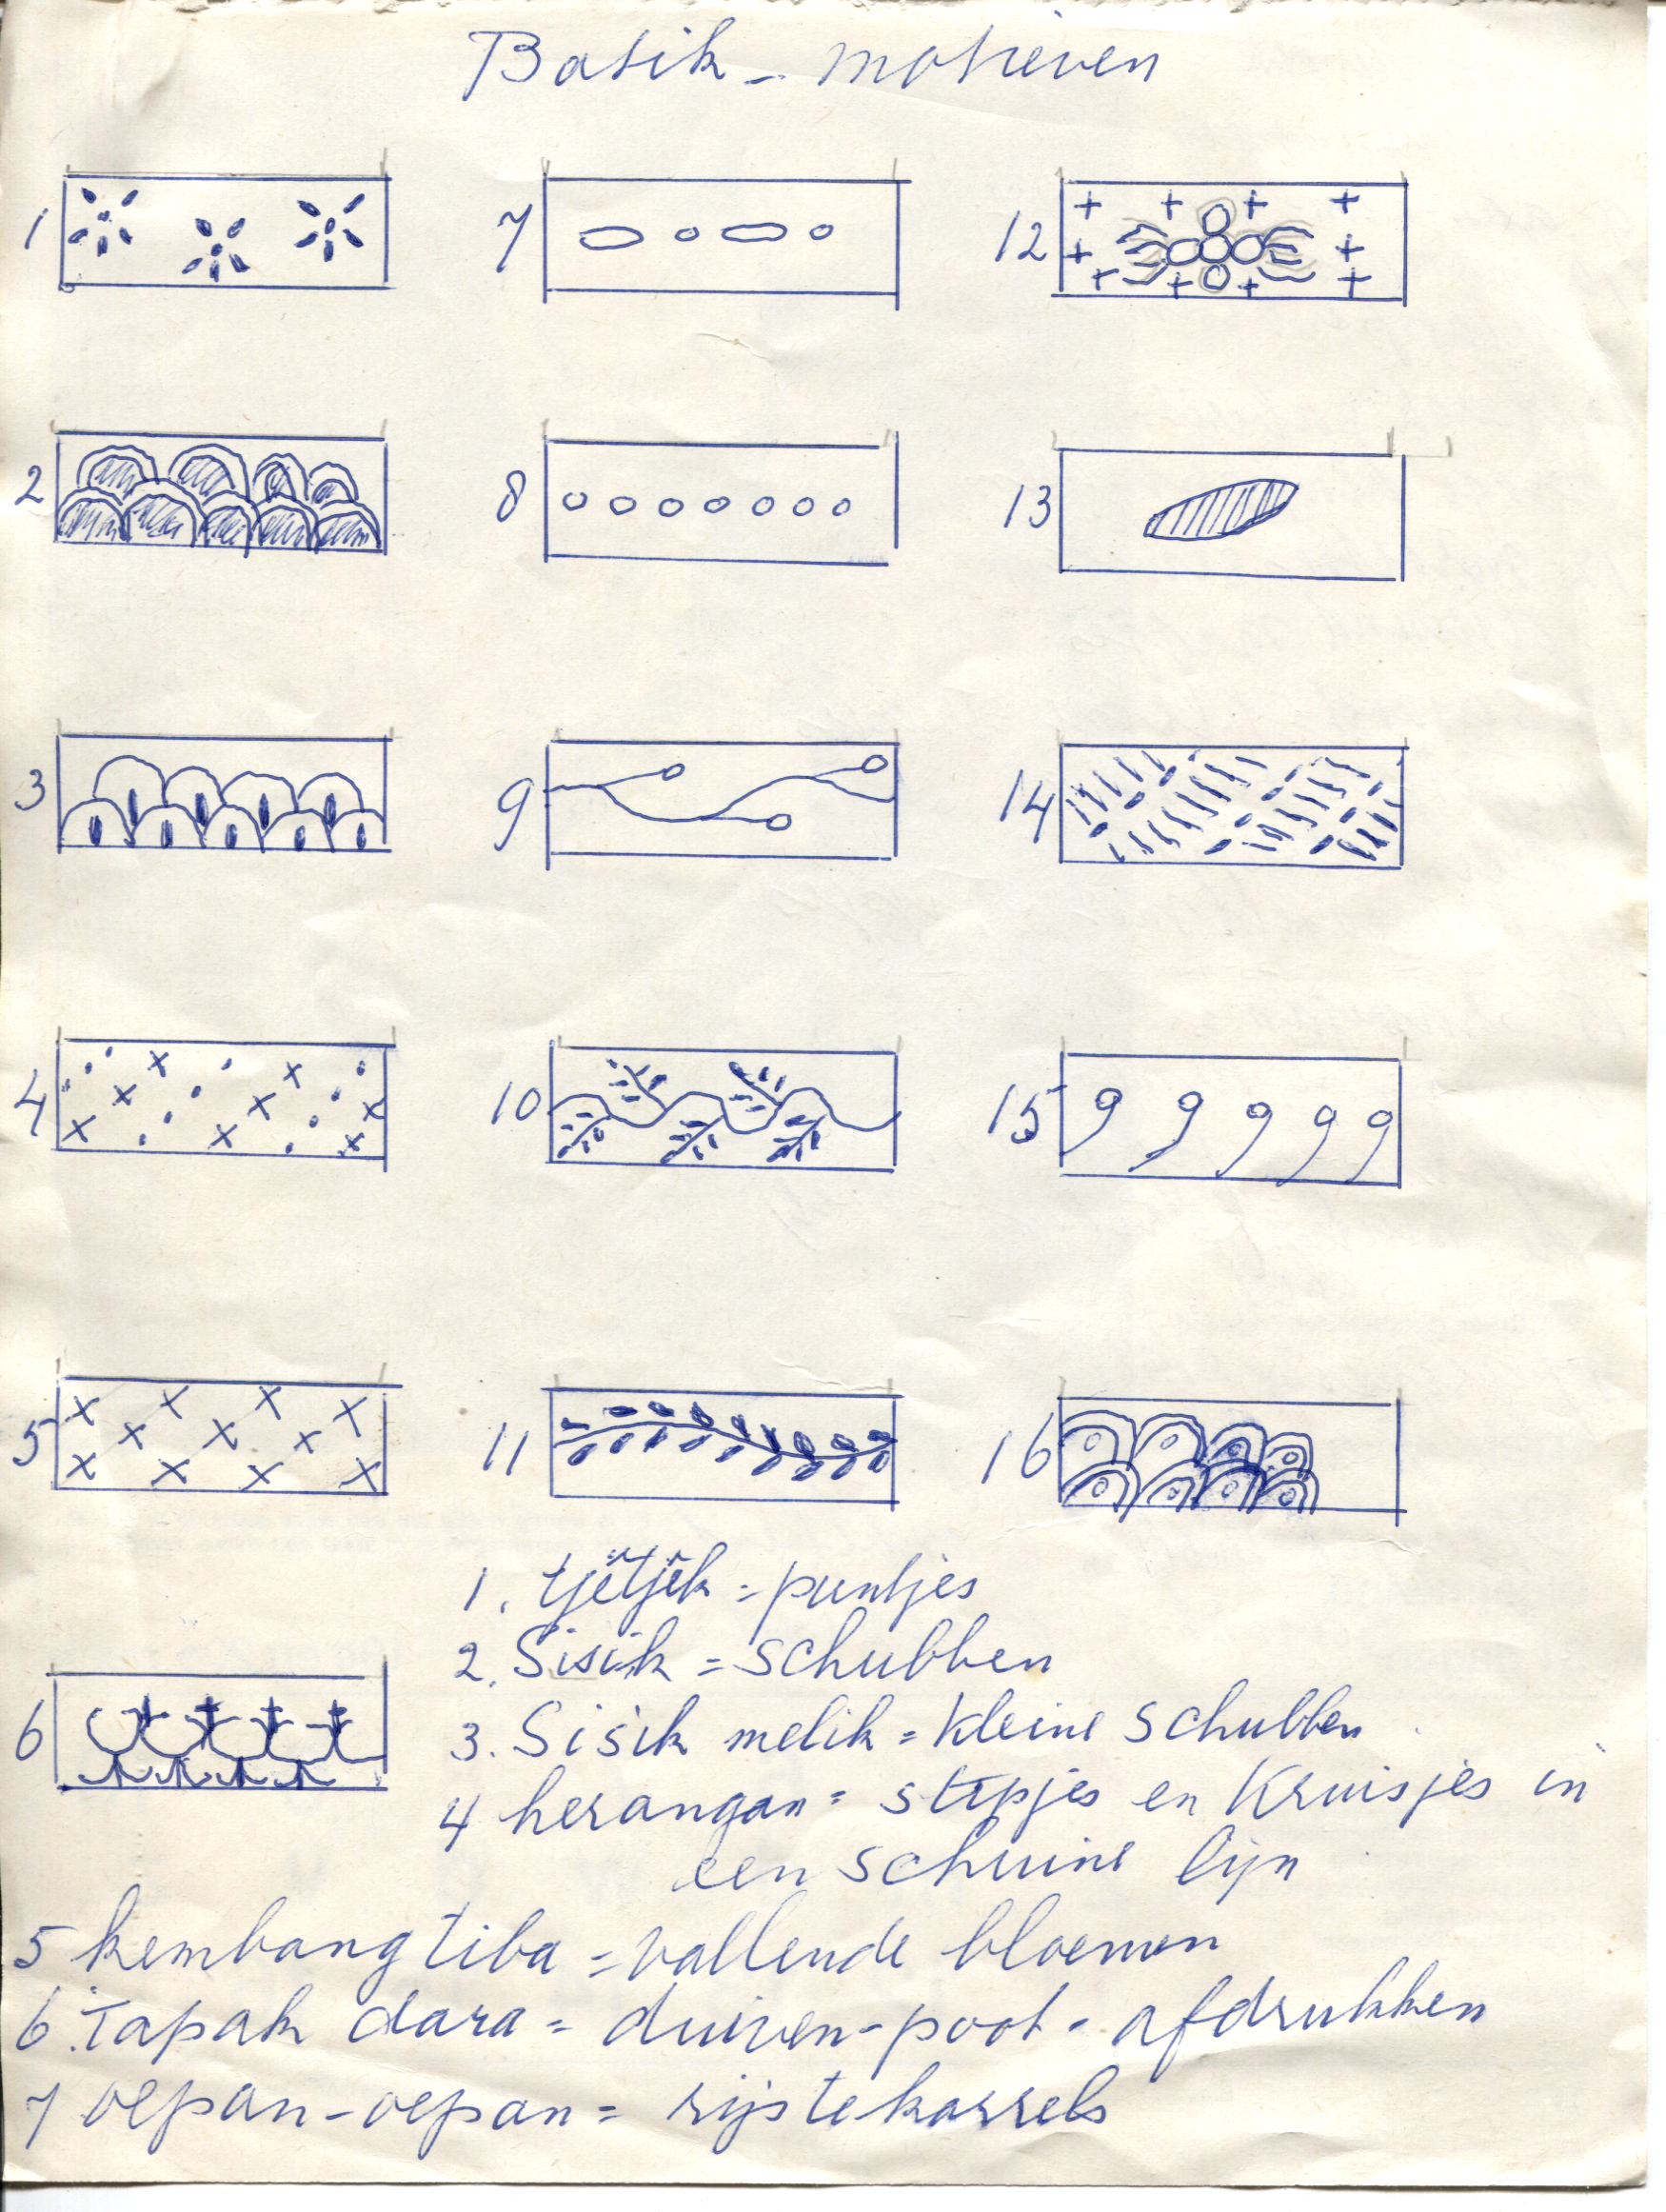 Batik - motieven
1
7
12
2
8
13
3
9
14
4
10
15
5
11
16
6
1. tjĕtjĕk = puntjes
2. Sisik = schubben
3. Sisik melik = kleine schubben
4 herangan = stipjes en kruisjes in
een schuine lijn
5 kembang tiba = vallende bloemen
6. Tapak dara = duiven-poot-afdrukken
7 oepan-oepan = rijstekorrels